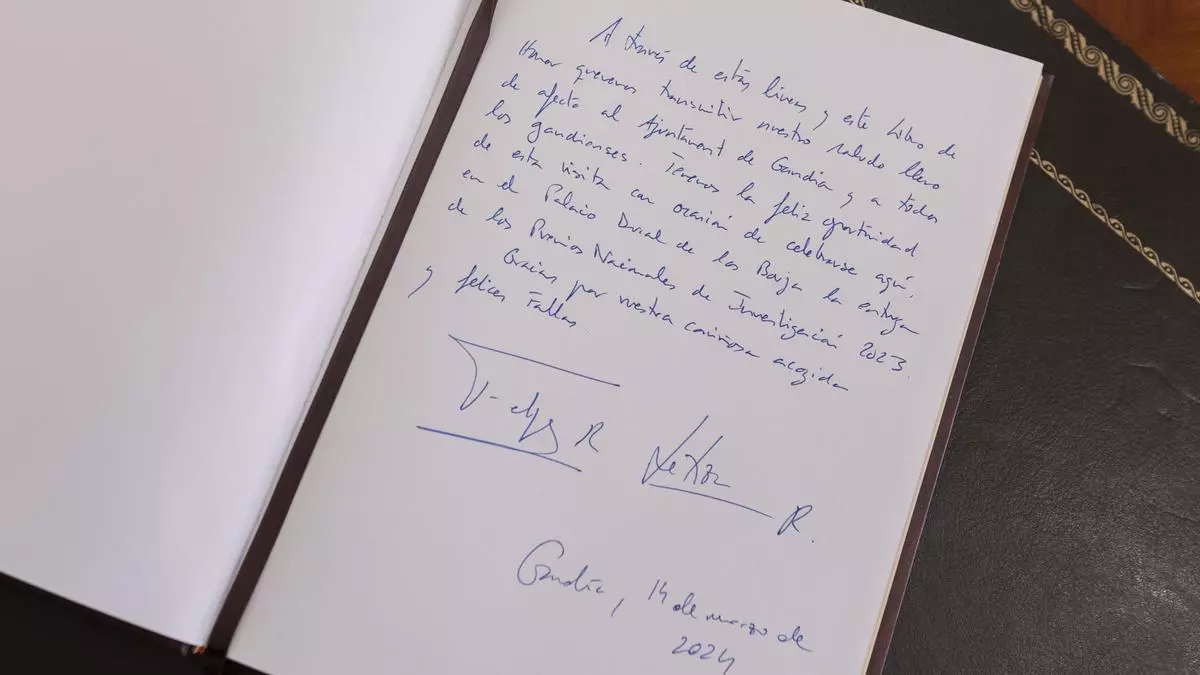 A través de estas líneas y este Libro de
Honor queremos transmitir nuestro saludo lleno
de afecto al Ajuntament de Gandía y a todos
los gandienses. Tenemos la feliz oportunidad
de esta visita con ocasión de celebrarse aquí,
en el Palacio Ducal de los Borja la entrega
de los Premios Nacionales de Investigación 2023.
Gracias por vuestra cariñosa acogida
y felices Fallas.
Felipe R
Letizia R.
Gandía, 14 de marzo de
2024